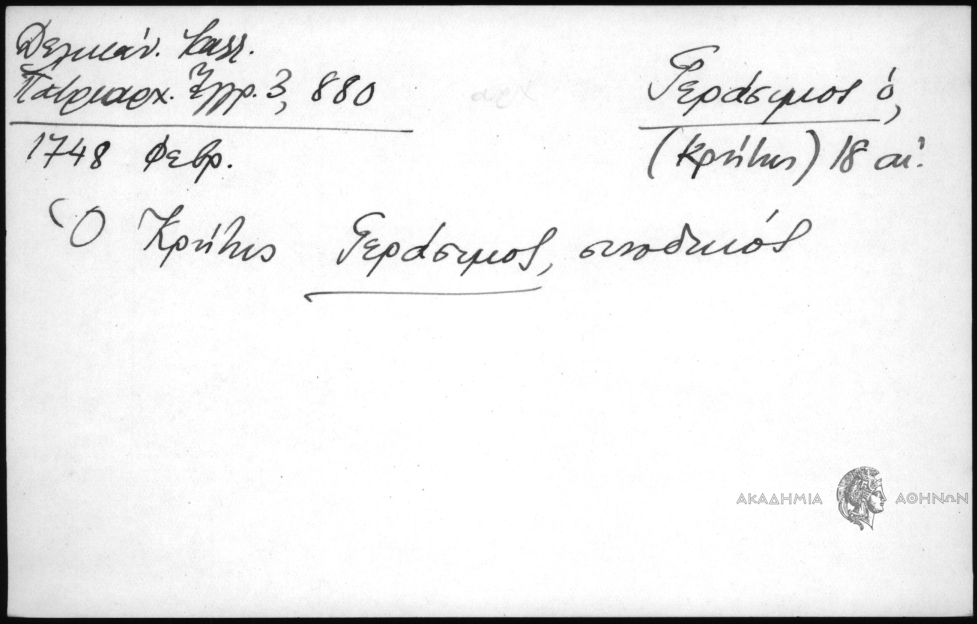 Δελικάν. Καλλ.
Πατριαρχ. Ἔγγρ. 3, 880
1748 Φεβρ.
Γεράσιμος ὁ,
(Κρήτης) 18 αἰ.
Ὁ Κρήτης Γεράσιμος, συνοδικός
ΑΚΑΔΗΜΙΑ ΑΘΗΝΩΝ